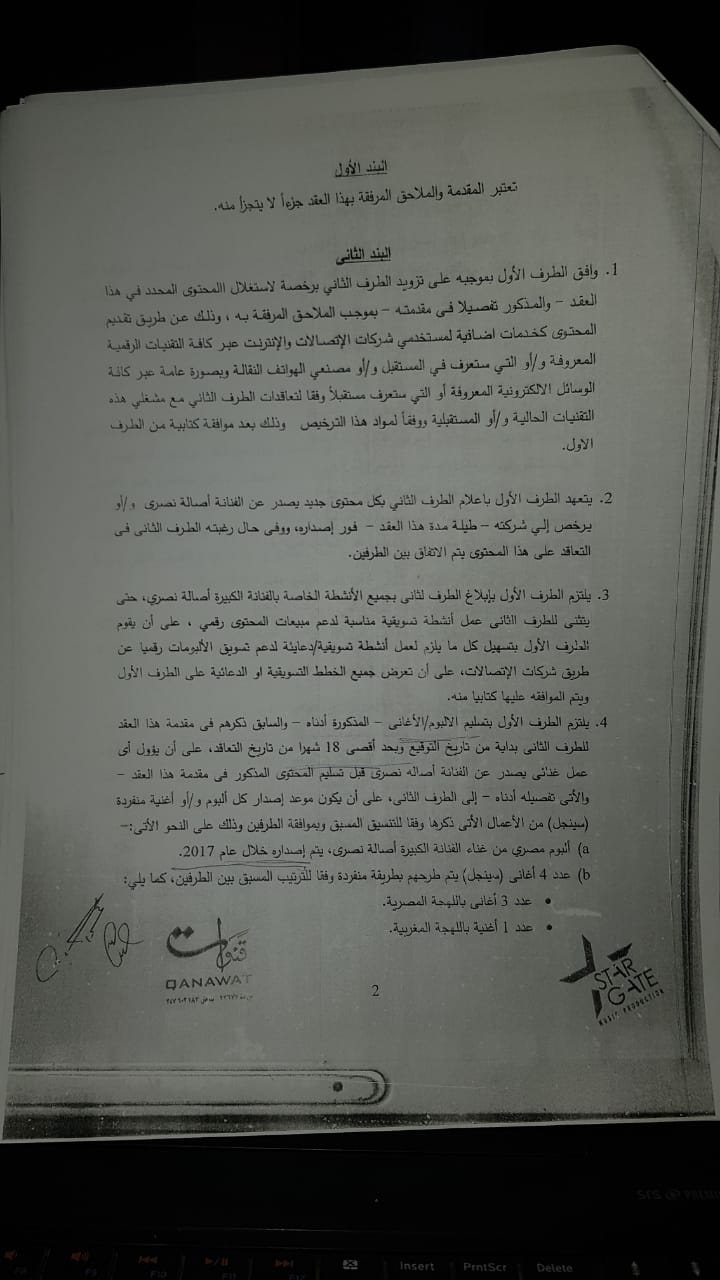 البند الأول
تعتبر المقدمة والملاحق المرفقة بهذا العقد جزءاً لا يتجزأ منه.
البند الثانى
1. وافق الطرف الأول بموجبه على تزويد الطرف الثاني برخصة لاستغلال االمحتوى المحدد في هذا
العقد – والمذكور تفصيلا فى مقدمته – بموجب الملاحق المرفقة به ، وذلك عن طريق تقديم
المحتوى كخدمات اضافية لمستخدمي شركات الإتصالات والإنترنت عبر كافة التقنيات الرقمية
المعروفة و/أو التي ستعرف في المستقبل و/أو مصنعي الهواتف النقالة وبصورة عامة عبر كافة
الوسائل الالكترونية المعروفة أو التي ستعرف مستقبلاً وفقا لتعاقدات الطرف الثاني مع مشغلي هذه
التقنيات الحالية و/أو المستقبلية ووفقاً لمواد هذا الترخيص وذلك بعد موافقة كتابية من الطرف
الاول.
2. يتعهد الطرف الأول باعلام الطرف الثاني بكل محتوى جديد يصدر عن الفنانة أصالة نصرى و/أو
يرخص إلي شركته – طيلة مدة هذا العقد – فور إصداره، ووفى حال رغبته الطرف الثانى فى
التعاقد على هذا المحتوى يتم الاتفاق بين الطرفين.
3. يلتزم الطرف الأول بإبلاغ الطرف لثانى بجميع الأنشطة الخاصة بالفنانة الكبيرة أصالة نصري، حتى
يتثنى للطرف الثانى عمل أنشطة تسويقية مناسبة لدعم مبيعات المحتوى رقمي ، على أن يقوم
الطرف الأول بتسهيل كل ما يلزم لعمل أنشطة تسويقية/دعايئة لدعم تسويق الألبومات رقميا عن
طريق شركات الإتصالات، على أن تعرض جميع الخطط التسويقية او الدعائية على الطرف الأول
ويتم الموافقه عليها كتابيا منه.
4. يلتزم الطرف الأول بتسليم الالبوم/الأغانى – المذكورة أدناه – والسابق ذكرهم فى مقدمة هذا العقد
للطرف الثانى بداية من تاريخ التوقيع وبحد أقصى 18 شهرا من تاريخ التعاقد، على أن يؤول أى
عمل غنائى يصدر عن الفنانة أصاله نصرى قبل تسليم المحتوى المذكور فى مقدمة هذا العقد –
والأتى تفصيله أدناه – إلى الطرف الثانى، على أن يكون موعد إصدار كل ألبوم و/أو أغنية منفردة
(سينجل) من الأعمال الأتى ذكرها وفقا للتنسيق المسبق وبموافقة الطرفين وذلك على النحو الأتى:–
a) ألبوم مصري من غناء الفنانة الكبيرة أصالة نصرى، يتم إصداره خلال عام 2017.
b) عدد 4 أغانى (سينجل) يتم طرحهم بطريقة منفردة وفقا للترتيب المسبق بين الطرفين، كما يلي:
• عدد 3 أغانى باللهجة المصرية.
• عدد 1 أغنية باللهجة المغربية.
قنوات
QANAWAT
2
STAR
GATE
MUSIC PRODUCTION
Insert PrntScr Delete
F9 F10 F11 F12